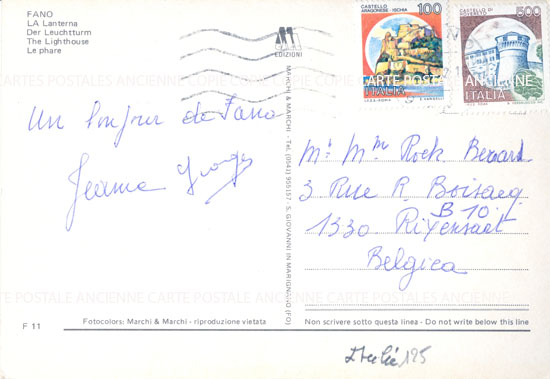 FANO
LA Lanterna
Der Leuchtturm
The Lighthouse
Le phare
EDIZIONI
CASTELLO
ARAGONESE - ISCHIA
100
ITALIA
CASTELLO DI
ROVERETO
500
ITALIA
CARTE POSTALE ANCIENNE
Un bonjour de Fano
Jeanne Georges
MARCHI & MARCHI - Tel. (0543) 956157 - S. GIOVANNI IN MARIGNANO (FO)
Mr Mme Rock
3 Rue R. Boisacq
B 10
1330 Rixensart
Belgica
F 11
Fotocolors: Marchi & Marchi - riproduzione vietata
Non scrivere sotto questa linea - Do not write below this line
Italie 125